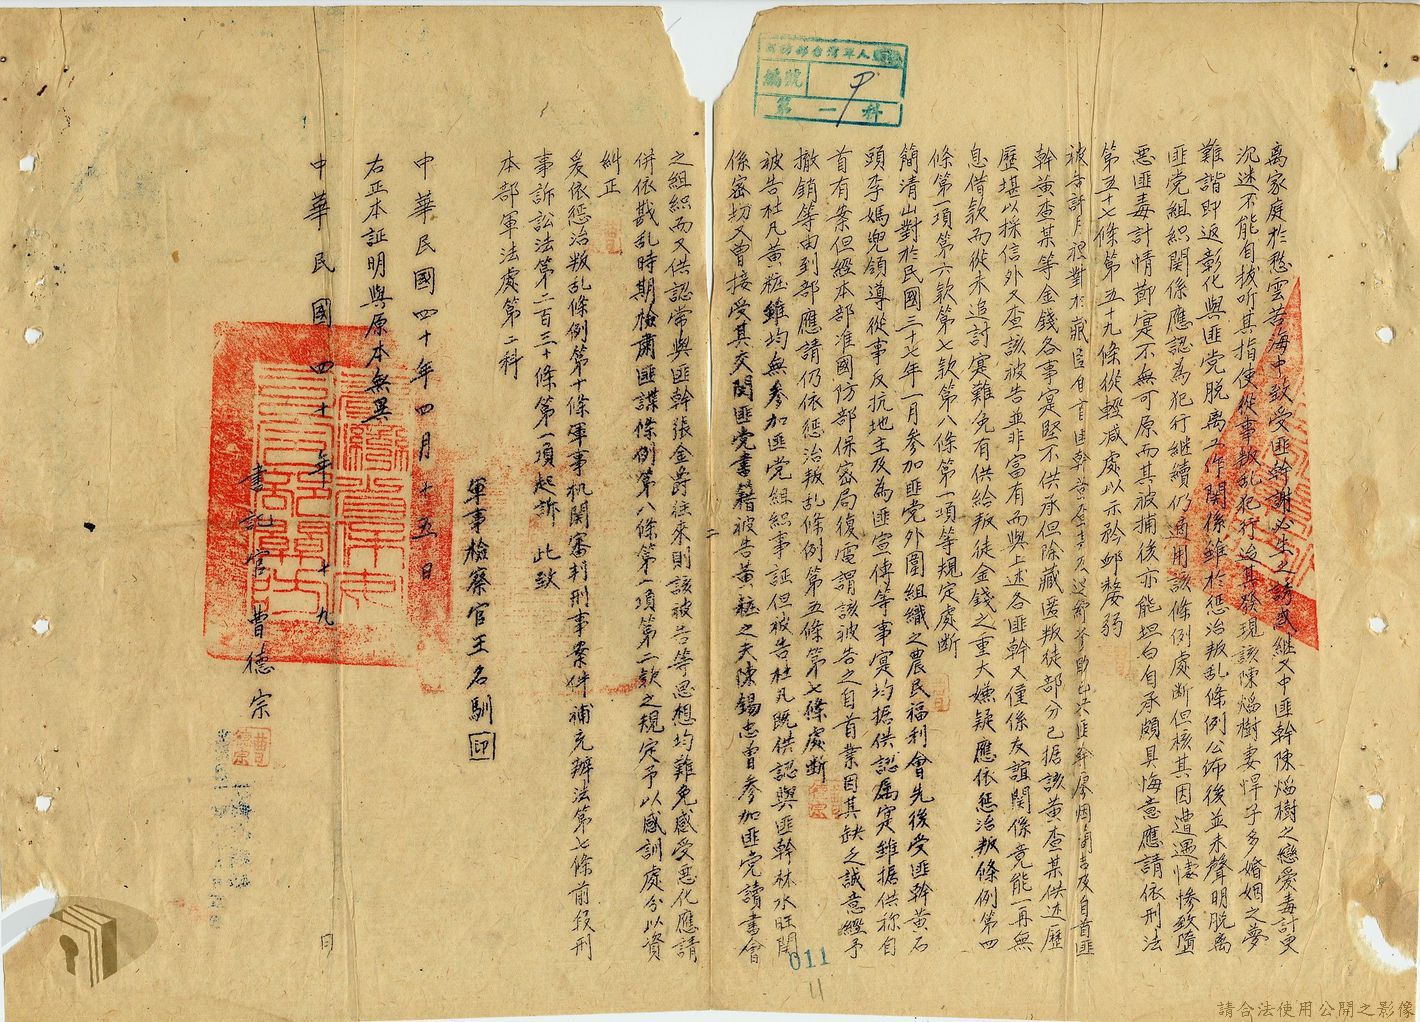 國防部台灣軍人
編號
第一科
離家庭於愁雲苦海中致受匪幹謝必生之誘惑继又中匪幹陳熖樹之戀爱毒計更
沉迷不能自拔听其指使從事叛乱犯行迨其發現該陳熖樹妻悍子多婚姻之夢
難諧即返彰化與匪党脱离工作関係雖於惩治叛乱條例公佈後並未聲明脱离
匪党組织関係應認為犯行継續仍適用該條例處断但核其因遭遇悽惨致墮
惡匪毒計情節寔不無可原而其被捕後亦能坦白自承頗具悔意應請依刑法
第五十七條第五十九條從輕减處以示矜卹嫠弱
被告許月裡對於藏匿
幹黄查某等金錢各事寔堅不供承但除藏匿叛徒部分已据該黄查某供述歷
歷堪以採信外又查該被告並非富有而與上述各匪幹又僅係友誼関係竟能一再無
息借款而從未追討寔難免有供給叛徒金錢之重大嫌疑應依惩治叛條例第四
條第一項第六款第七款第八條第一項等規定處断
簡清山對於民國三十七年一月参加匪党外圍組織之農民福利會先後受匪幹黄石
頭李媽兜領導從事反抗地主及為匪宣傳等事寔均据供認属寔雖据供称自
首有案但經本部准國防部保密局復電謂該被告之自首業因其缺乏誠意經予
撤銷等由到部應請仍依惩治叛乱條例第五條第七條處断
被告杜凡黄粧雖均無参加匪党組织事証但被告杜凡既供認與匪幹林水旺関
係密切又曾接受其交閱匪党書籍被告黄粧之夫陳錫忠曾参加匪党讀書會
二
之組织而又供認常與匪幹張金爵往來則該被告等思想均難免感受惡化應請
併依戡乱時期檢肅匪諜條例第八條第一項第二款之規定予以感訓處分以資
糾正
爰依惩治叛乱條例第十條軍事机関審判刑事案件補充辦法第七條前段刑
事訴訟法第二百三十條第一項起訴 此致
本部軍法處第二科
軍事檢察官王名馴 印
中華民國四十年四月十五日
右正本証明與原本無異
書記官曹德宗
中華民國四十年 十九 日
011
11
請合法使用公開之影像